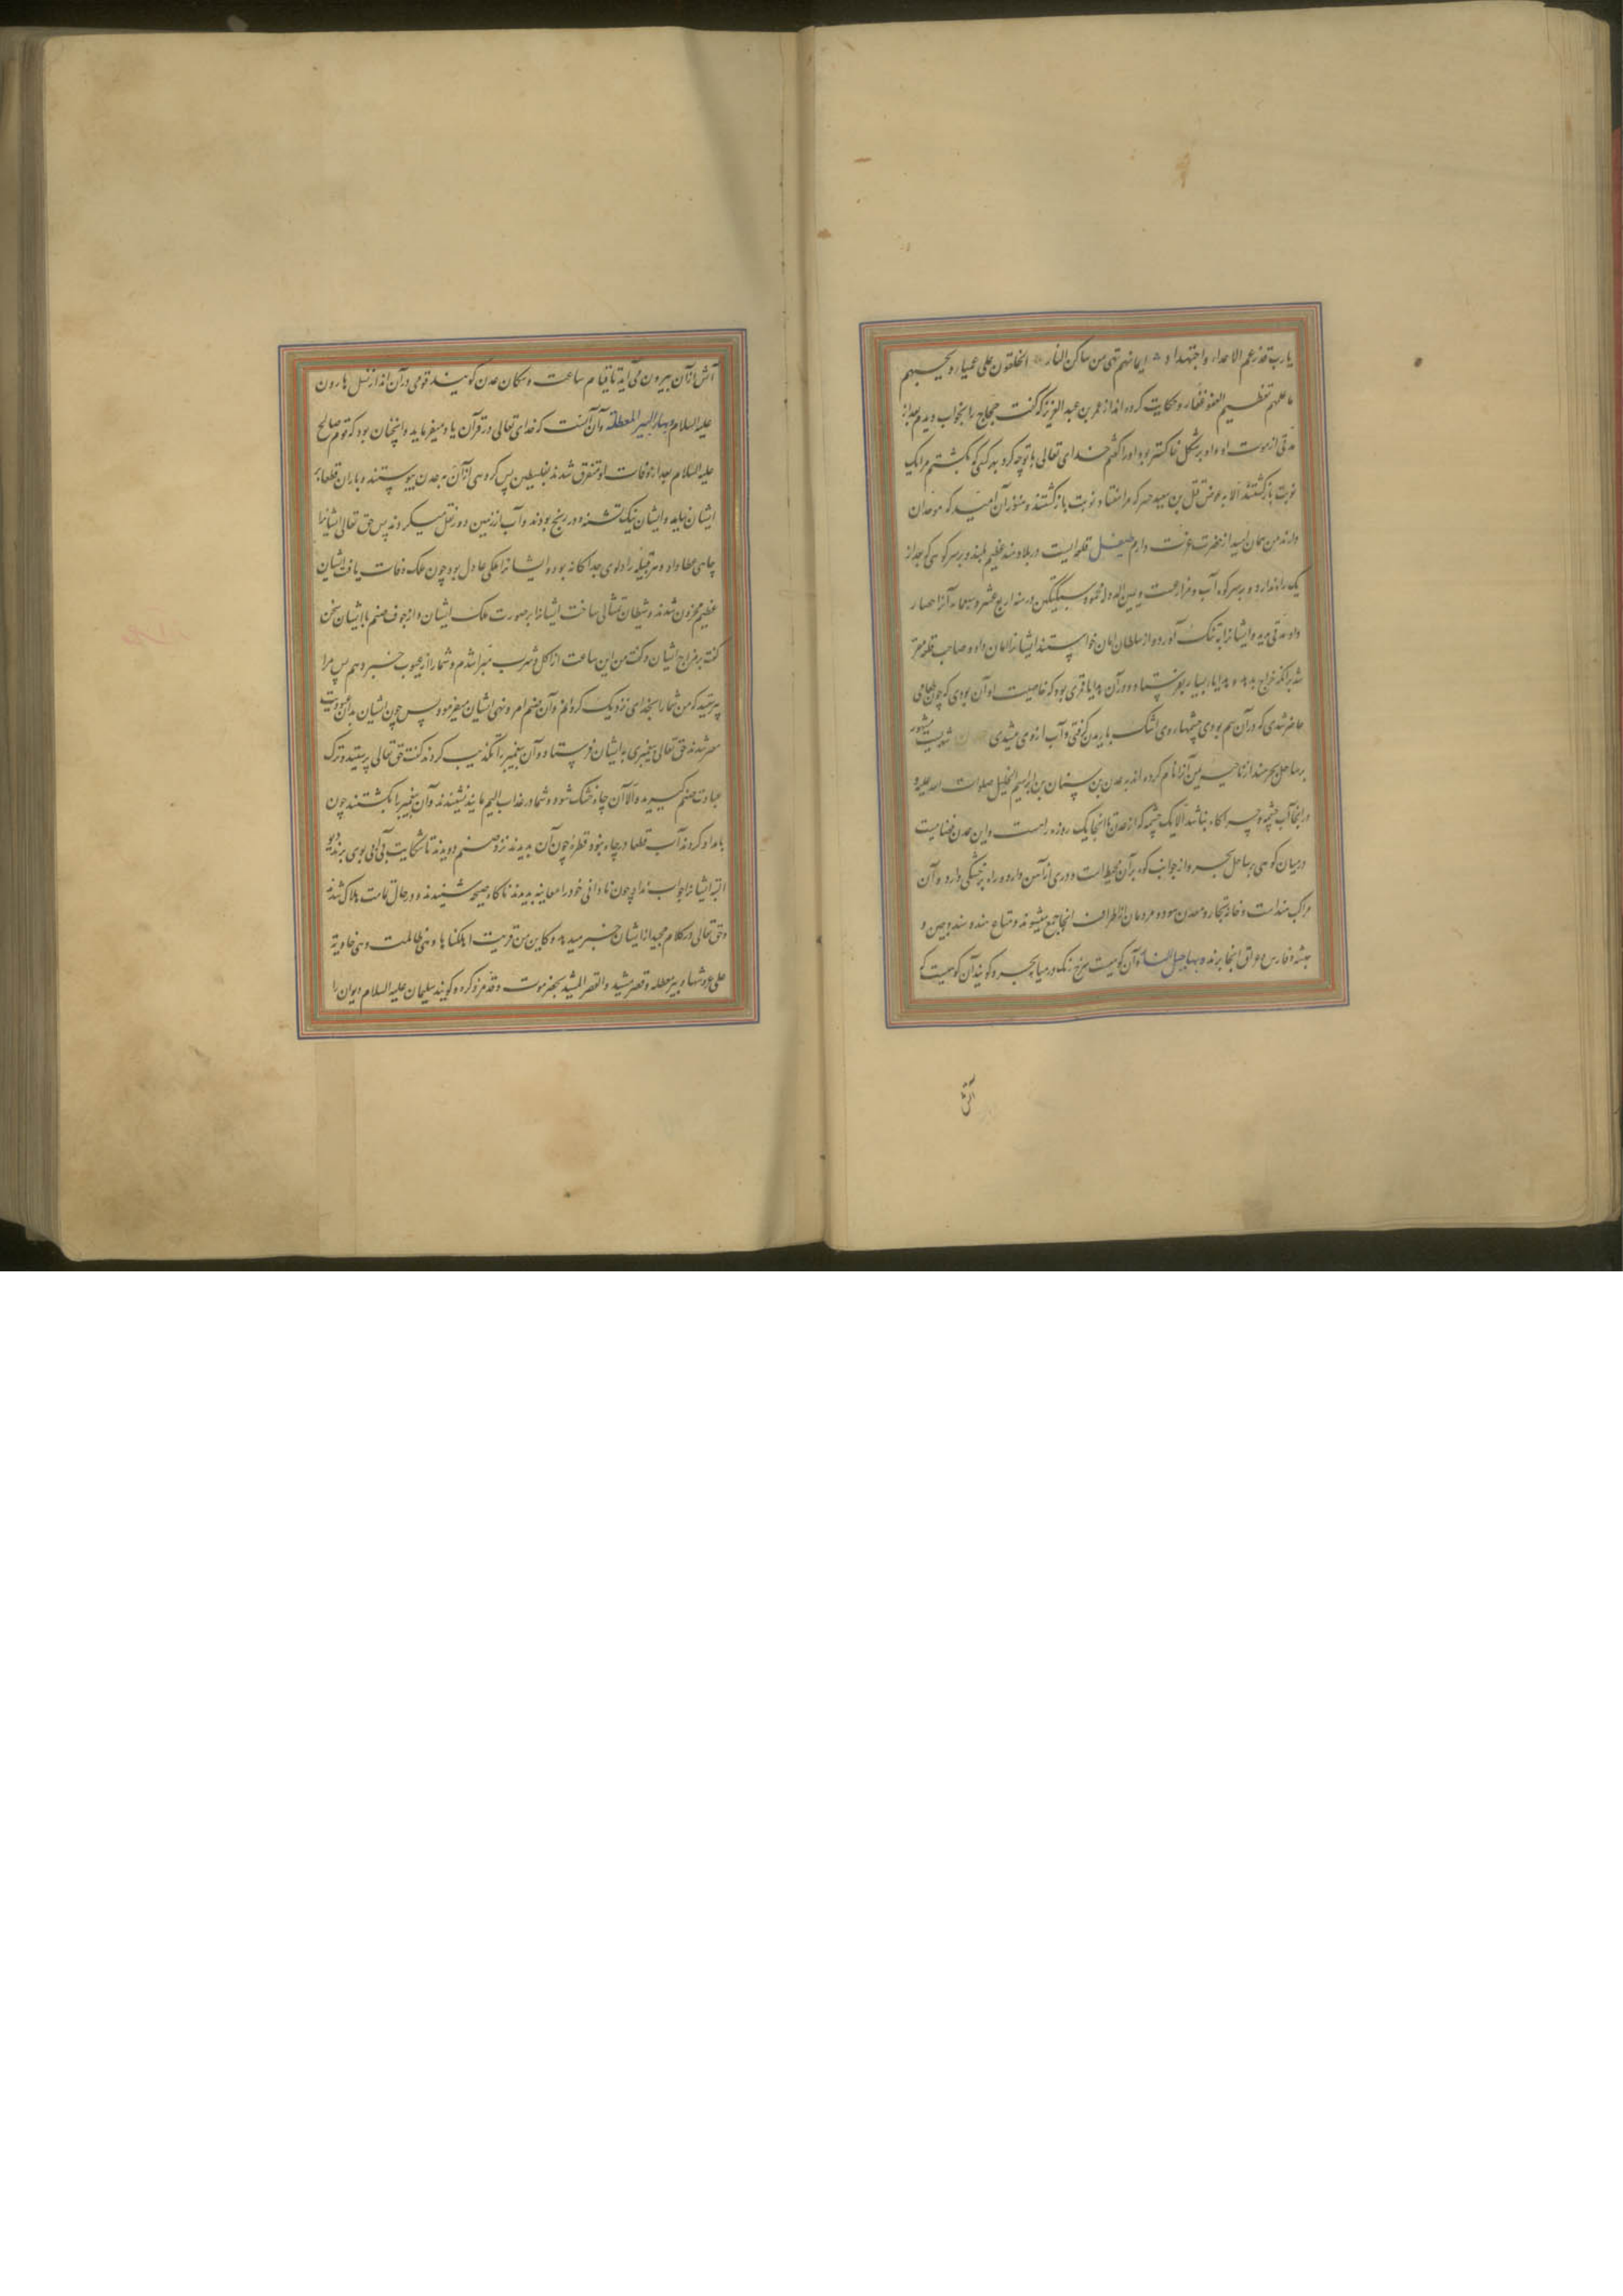 یارب قد زعم الاعداء واجتهدوا ایمانهم انی من ساکن النار ایحلفون علی عمیاء ویحسبهم
ما علمهم بعظیم العفو غفار وحکایت کرده اند از عمر بن عبدالعزیز که گفت حجاج را بخواب دیدم بعد از
مدتی از موت او و او بر شکل خاکستر بود اورا گفتم خدای تعالی با تو چه کرد بهر کسی که بکشتم مرا یک
نوبت بازکشتند الا به عوض قتل بن سعید جبیر که مرا هفتاد نوبت بازکشتند و هنوز آن امید که موحدان
دارند من همان امید از حضرت عزت دارم قلعه ایست در بلاد هند عظیم بلند و بر سر کوهی که جز از
یک راه ندارد و بر سر کوه آب و مزارعست و یمین الدوله محمود سبکتکین در سنه اربع عشر و اربعمایه آنرا حصار
داد مدتی مدید و ایشانرا به تنک آورد و از سلطان امان خواستند ایشانرا امان داد و صاحب قلعه مقرر
شد برانکه خراج بدهد و هدایا بسیار بفرستاد و در آن هدایا قمری بود که خاصیت او آن بودی که چون طعامی
حاضر شدی که در آن سم بودی چشمهاء وی اشک باریدن گرفتی و آب از وی میشدی عدن شهریست مشهور
بر ساحل بحر هند از ناحیه یمن آنرا نام کرده اند به عدن بن سنان بن ابراهیم الخلیل صلوات الله علیه و
در انجا آب چشمه و چراگاه نباشد الا یک چشمه که از عدن تا انجا یک روزه راهست و این عدن فضاییست
در میان کوهی بر ساحل بحر و از جوانب کوه بر آن محیط است و دری از آهن دارد و راه بر خشکی دارد و آن
مراکب هند است و خانه تجار و معدن سود و مردمان از اطراف انجا جمع میشوند و متاع هند و سند و چین و
حبشه و فارس و عراق انجا برند و بها جبل النار و آن کوهیست سرخ رنک در میان بحر و کویند آن کوهیست که
آتش
آتش از آن بیرون می آید تا قیام ساعت و سکان عدن کویند قومی در آن اند از نسل هارون
علیه السلام و بها البیر المعطلة و آن آنست که خدای تعالی در قرآن یاد میفرماید و اینچنان بود که قوم صالح
علیه السلام بعد از وفات او متفرق شدند بفلسطین پس گروهی از آن به عدن پیوستند و باران قطعا بر
ایشان نیاید و ایشان نیک تشنه و در رنج بودند و آب از زمین دور نقل میکردند پس حق تعالی ایشانرا
چاهی عطا داد و هر قبیله را دلوی جداکانه بود و ایشانرا ملکی عادل بود چون ملک وفات یافت ایشان
عظیم محزون شدند و شیطان تمثالی ساخت ایشانرا بر صورت ملک ایشان و از جوف صنم با ایشان سخن
گفت بر مزاج ایشان و گفت من این ساعت از اکل و شرب مبرا شدم و شما را از غیوب خبر دهم پس مرا
پرستید که من شما را بخدای نزدیک کردانم و آن صنم امر و نهی ایشان میفرمود پس چون ایشان بدان عبودیت
مصر شدند حق تعالی پیغمبری به ایشان فرستاد و آن پیغمبر را تکذیب کردند گفت حق تعالی پرستید و ترک
عبادت صنم گیرید و الا آن چاه خشک شود و شما در عذاب الیم مانید نشنیدند و آن پیغمبر را بکشتند چون
بامداد کردند آب قطعا در چاه نبود قطره چون آن بدیدند نزد صنم دویدند تا شکایت بی آبی بوی برند دیو
البته ایشانرا جواب نداد چون نادانی خود را معاینه بدیدند ناگاه صیحه شنیدند و در حال تمامت هلاک شدند
و حق تعالی در کلام مجید از ایشان خبر میدهد و کاین من قریت اهلکناها و هی ظالمت و هی خاویة
علی عروشها و بیر معطله و قصر مشید و القصر المشید بحضرموت و قد مر ذکره و کویند سلیمان علیه السلام دیوان را